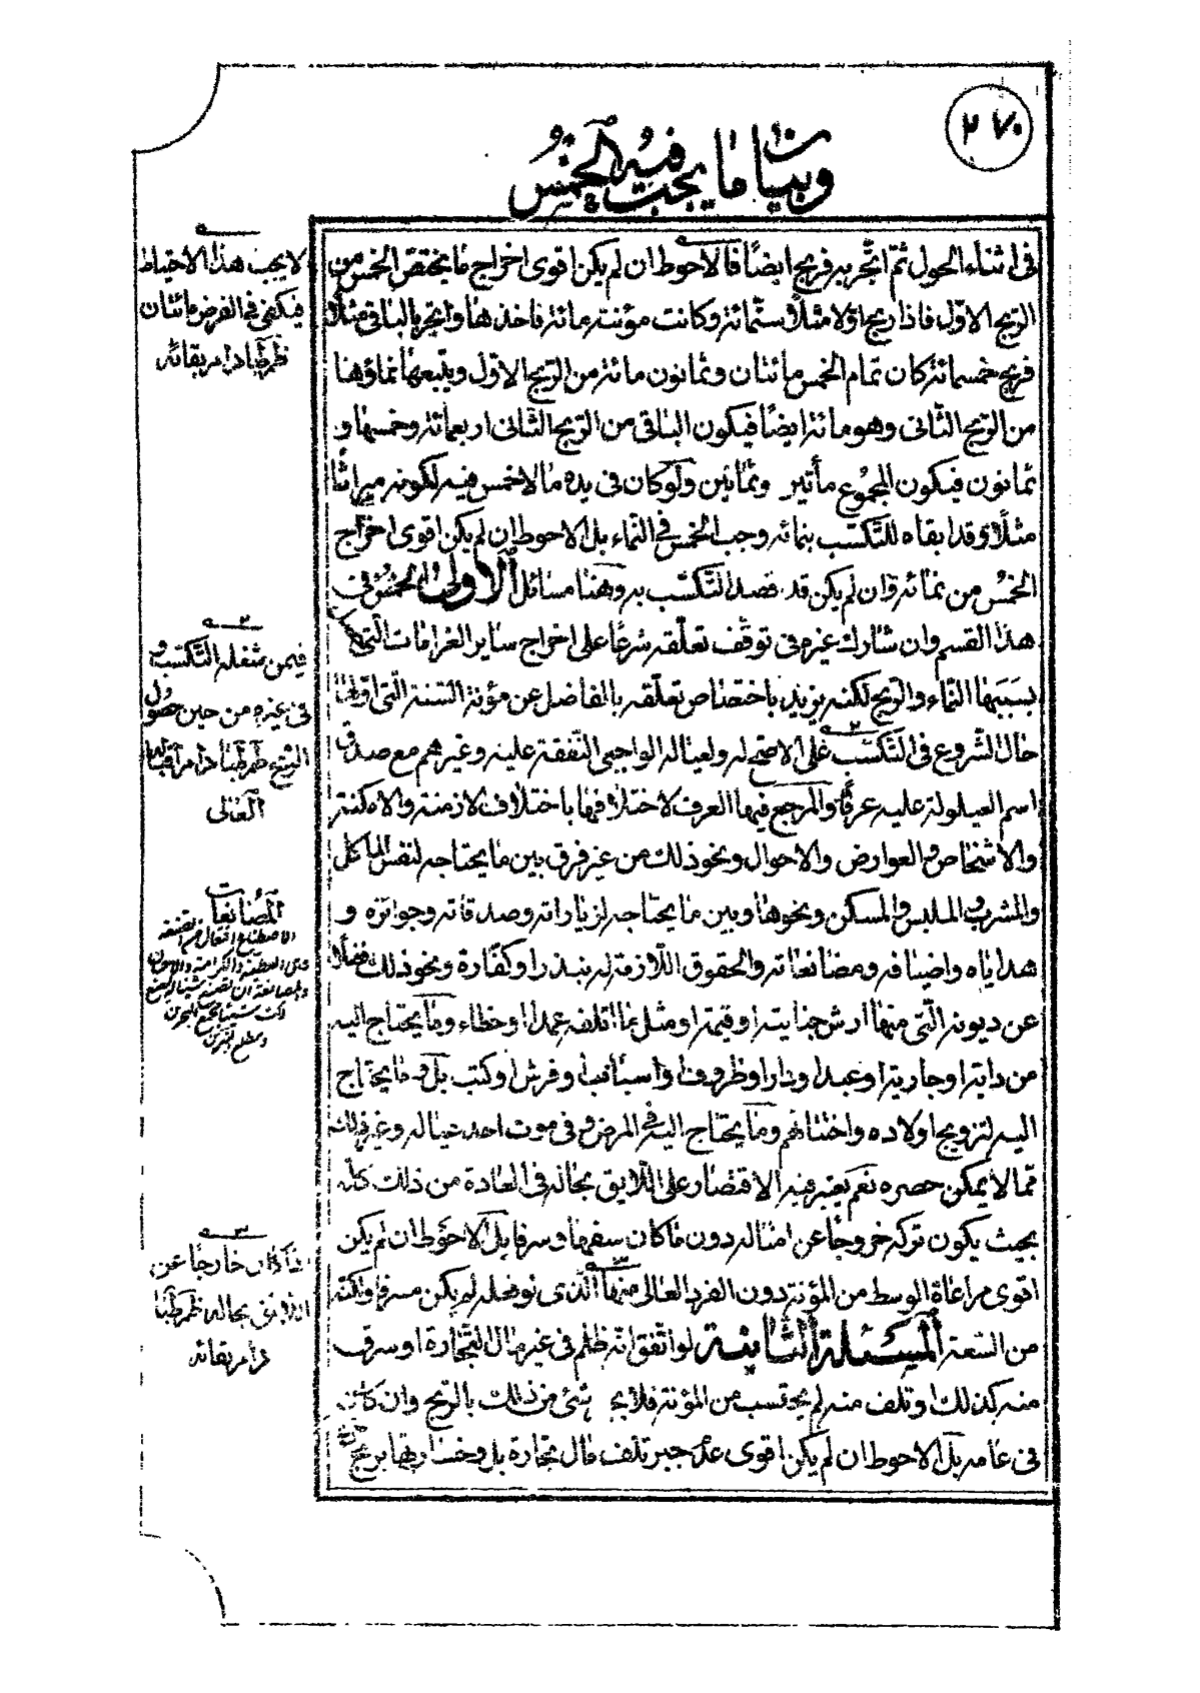 ٢٧٠
وبيان ما يجب فيه الخمس
فى اثناء الحول ثمّ اتّجر به فربح ايضًا فالاحوط ان لم يكن اقوى اخراج ما يختصّ الخمس من
الربح الاوّل فاذا ربح اوّلا مثلًا ستّمائة وكانت مؤنته مائة فاخذها واتجر بالباقى مثلًا
فربح خمسمائة كان تمام الخمس مائتان وثمانون مائة من الربح الاوّل ويتبعها نماؤها
من الربح الثّانى وهو مائة ايضًا فيكون الباقى من الربح الثّانى اربعمائة وخمسها و
ثمانون فيكون المجموع مأتين وثمانين ولو كان فى يده ما لا خمس فيه لكونه ميراثًا
مثلًا وقد ابقاه للتّكسّب بنمائه وجب الخمس فى النّماء بل الاحوط ان لم يكن اقوى اخراج
الخمس من نمائه وان لم يكن قد قصد التّكسّب به وهنا مسائل الاولى الخمس فى
هذا القسم وان شارك غيره فى توقّف تعلّقه شرعًا على اخراج ساير الغرامات الّتى
بسببها النّماء والربح لكنه يزيد باختصاص تعلّقه بالفاضل عن مؤنة السّنة الّتى اوّلها
حال الشّروع فى التّكسّب على الاصحّ له ولعياله الواجبى النّفقة عليه وغيرهم مع صدق
اسم العيلولة عليه عرفًا والمرجع فيها العرف لاختلافها باختلاف الازمنة والامكنة
والاشخاص والعوارض والاحوال ونحو ذلك من غير فرق بين ما يحتاجه لنفس المأكل
والمشرب والملبس والمسكن ونحوها وبين ما يحتاجه لزياراته وصدقاته وجوائزه و
هداياه واضيافه ومصانعاته والحقوق اللّازمة له بنذر او كفّارة ونحو ذلك فضلًا
عن ديونه الّتى منها ارش جنايته او قيمة او مثل ما اتلفه عمدًا او خطاء وما يحتاج اليه
من دابة او جارية او عبد او دار او ظروف او اسباب او فرش او كتب بل وما يحتاج
اليه لتزويج اولاده واختتانهم وما يحتاج اليه فى المرض وفى موت احد عياله وغير ذلك
ممّا لا يمكن حصره نعم يعتبر فيه الاقتصار على اللّايق بحاله فى العادة من ذلك كلّه
بحيث يكون تركه خروجًا عن امثاله دون ما كان سفهًا وسرفا بل الاحوط ان لم يكن
اقوى مراعاة الوسط من المؤنة دون الفرد العالى منها الّذى لو فعله لم يكن مسرفا ولكنّه
من السّعة المسئلة الثّانية لو اتّفق انّه ظلم فى غير مال التّجارة او سرق
منه كذلك او تلف منه لم يحتسب من المؤنة فلا يجبر شئ من ذلك بالربح وان كان
فى عامه بل الاحوط ان لم يكن اقوى عدم جبر تلف مال تجارة بل وخسارتها بربح
لا يجب هذا الاحتياط
فيكفى فى الفرض مائتان
ظم طبا دام بقائه
٢
فيمن شغله التّكسّب و
فى غيره من حين حصول
الربح ظم طبا دام
العالى
المصانعات
الاصطناع افتعال من الصنيعة
وهى العطية والكرامة والاحسان
والمصانعة ان تصنع شيئا ليصنع
لك شيئا مجمع البحرين
ومطلع النيّرين
٣
اذا كان خارجًا عن
اللايق بحاله ظم طبا
دام بقائه